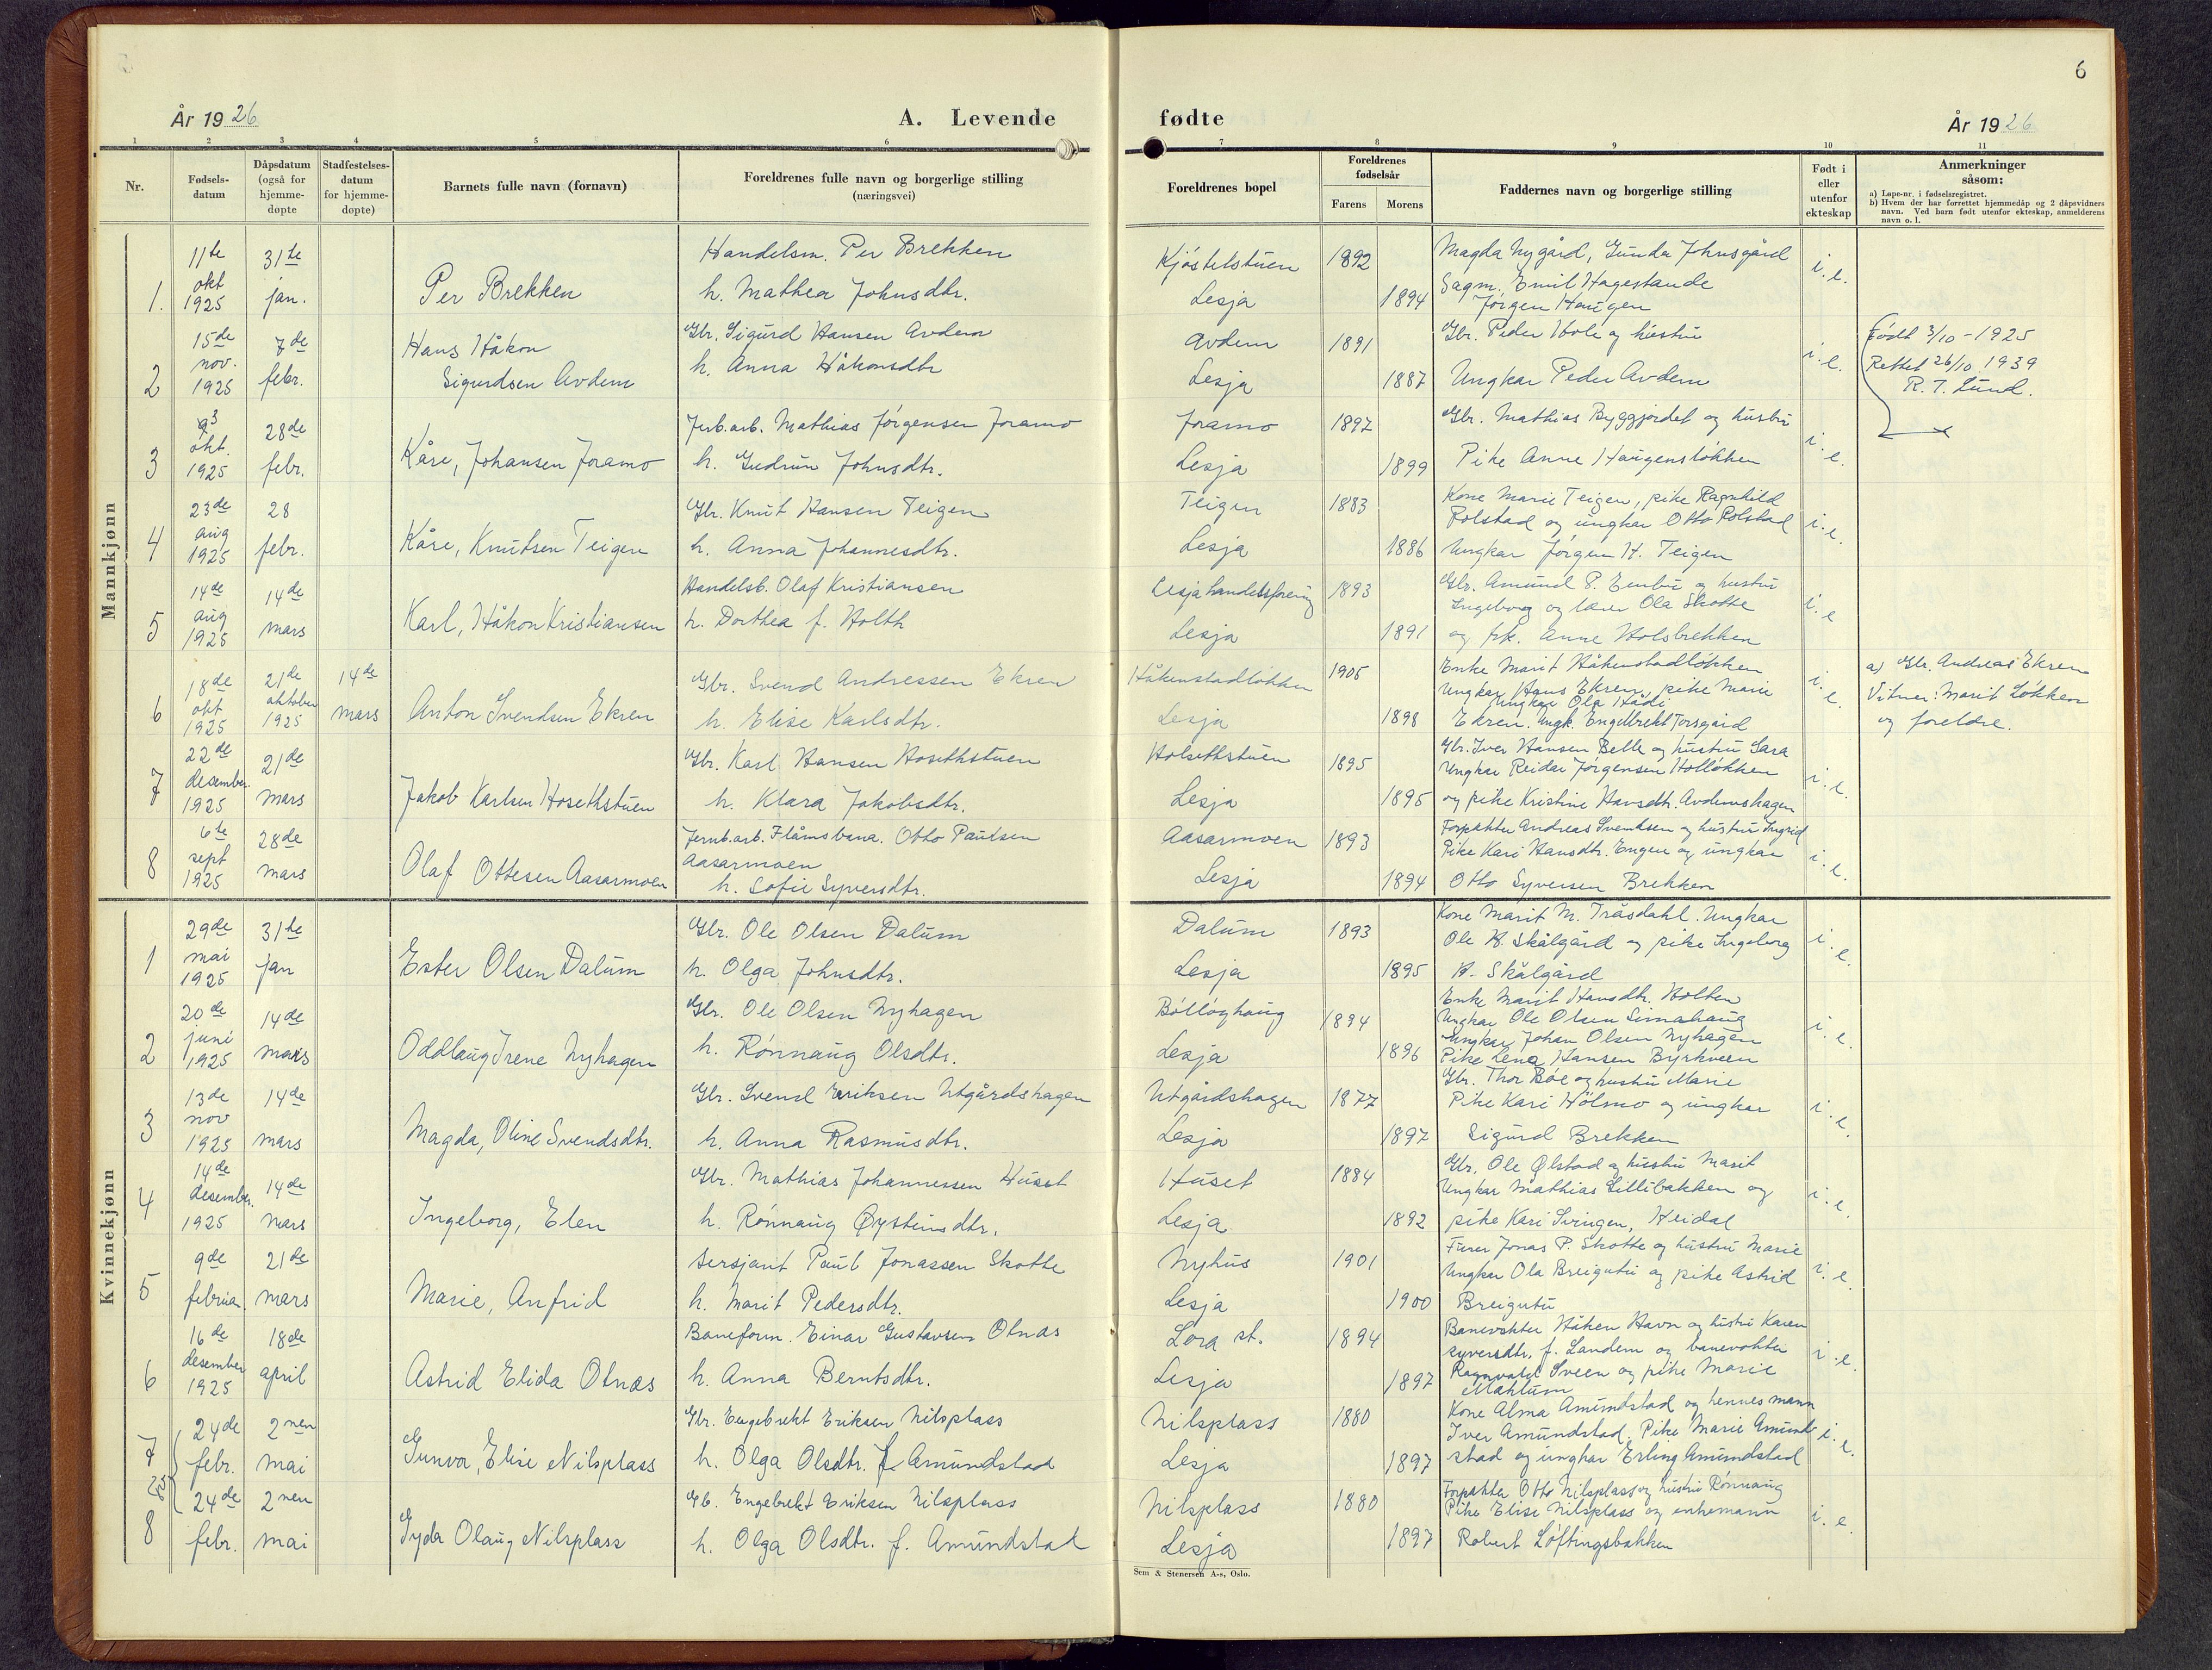 6
År 1926
A. Levende
fødte
År 1926
1 2 3 4 5 6 7 8 9 10 11
Nr.
Fødsels-
datum
Dåpsdatum
(også for
hjemme-
døpte
Stadfestelses-
datum
for hjemme-
døpte)
Barnets fulle navn (fornavn)
Foreldrenes fulle navn og borgerlige stilling
(næringsvei)
Foreldrenes bopel
Foreldrenes
fødselsår
Farens Morens
Faddernes navn og borgerlige stilling
Født i
eller
utenfor
ekteskap
Anmerkninger
såsom:
a) Løpe-nr. i fødselsregistret.
b) Hvem der har forrettet hjemmedåp og 2 dåpsvidners
navn. Ved barn født utenfor ekteskap, anmelderens
navn o. l.
Mannkjønn
1. 11te okt 1925 31te jan. Per Brekken
Handelsm. Per Brekken
h. Mathea Johnsdtr.
Kjøstelstuen Lesja 1892 1894
Magda Nygård, Gunda Johnsgård
Sagm. Emil Hagestande
Jørgen Haugen
i. e.
2 15de nov. 1925 7de febr. Hans Håkon
Sigurdsen Avdem
Gbr. Sigurd Hansen Avdem
h. Anna Håkonsdtr
Avdem Lesja 1891 1887
Gbr. Peder Hole og hustru
Ungkar Peder Avdem
i. e.
Født 3/10 - 1925
Rettet 26/10 1939
R. T. Lund.
3 3 okt. 1925 28de febr. Kåre, Johansen Joramo
Jerb.arb. Mathias Jørgensen Joramo
h. Gudrun Johnsdtr.
Joramo Lesja 1897 1899
Gbr. Mathias Byggjordet og hustru
Pike Anne Haugensløkken
i. e.
4 23de aug 1925 28 febr. Kåre, Knutsen Teigen
Gbr. Knut Hansen Teigen
h. Anna Johannesdtr.
Teigen Lesja 1883 1886
Kone Marie Teigen, pike Ragnhild
Rolstad og ungkar Otto Rolstad
Ungkar Jørgen H. Teigen
i. e.
5 14de aug 1925 14de mars Karl, Håkon Kristiansen
Handelsb. Olaf Kristiansen
h. Dorthea f. Holth
Lesja handelsforening Lesja 1893 1891
Gbr. Amund P. Enbu og hustru
Ingeborg og lærer Ola Skotte
og frk. Anne Holsbrekken
i. e
6 18de okt 1925 21de oktober 1925 14de mars Anton Svendsen Ekren
Gbr. Svend Andressen Ekren
h. Elise Karlsdtr.
Håkenstadløkken Lesja 1905 1898
Enke Marit Håkenstadløkken
Ungkar Hans Ekren, pike Marie
Ungkar Ola Hådi
Ekren. Ungk. Engelbrekt Torsgård
i. e.
a) Gbr. Andreas Ekren
Vitner: Marit Løkken
og foreldre.
7 22de desember. 1925 21de mars Jakob Karlsen Hosethstuen
Gbr. Karl Hansen Hosethstuen
h. Klara Jakobsdtr.
Holsethstuen Lesja 1895 1895
Gbr. Iver Hansen Belle og hustru Sara
Ungkar Reidar Jørgensen Holløkken
og pike Kristine Hansdtr. Avdemshagen
i. e.
8 6te sept 1925 28de mars Olaf Ottesen Aasarmoen
Jernb.arb. Flåmsbana. Otto Paulsen
Aasarmoen
h. Sofie Syversdtr.
Aasarmoen Lesja 1893 1894
Forpakter Andreas Svendsen og hustru Ingrid
Pike Kari Hansdtr. Engen og ungkar
Otto Syversen Brekken
i. e.
Kvinnekjønn
1 29de mai 1925 31te jan Ester Olsen Dalum
Gbr. Ole Olsen Dalum
h. Olga Johnsdtr.
Dalum Lesja 1893 1895
Kone Marit M. Tråsdahl. Ungkar
Ole K. Skålgård og pike Ingeborg
K. Skålgård
i. e.
2 20de juni 1925 14de mars Oddlaug Irene Nyhagen
Gbr. Ole Olsen Nyhagen
h. Rønnaug Olsdtr.
Bølløghaug Lesja 1894 1896
Enke Marit Hansdtr. Holten
Ungkar Ole Olsen Simahaug
Ungkar Johan Olsen Nyhagen
Pike Lena Hansen Byrkveen
i. e.
3 13de nov 1925 14de mars Magda, Oline Svendsdtr.
Gbr. Svend Eriksen Utgårdshagen
h. Anna Rasmusdtr.
Utgårdshagen Lesja 1877 1897
Gbr. Thor Bøe og hustru Marie
Pike Kari Hølmo og ungkar
Sigurd Brekken
i. e.
4 14de desember. 1925 14de mars Ingeborg, Elen
Gbr. Mathias Johannessen Huset
h. Rønnaug Øysteinsdtr.
Huset Lesja 1884 1892
Gbr. Ole Ølstad og hustru Marit
Ungkar Mathias Lillibakken og
pike Kari Svingen, Heidal
i. e.
5 9de februar. 21de mars Marie, Anfrid
Sersjant Paul Jonassen Skotte
h. Marit Pedersdtr.
Nyhus Lesja 1901 1900
Furer Jonas P. Skotte og hustru Marie
Ungkar Ola Breigutu og pike Astrid
Breigutu
i. e.
6 16de desember 1925 18de april Astrid Elida Otnæs
Baneform. Einar Gustavsen Otnæs
h. Anna Berntsdtr.
Lora st. Lesja 1894 1897
Banevokter Håken Havn og hustru Karen
Syversdtr, f. Landem og banevokter
Ragnvald Sveen og pike Marie
Mæhlum
i. e.
7 24de febr. 2nen mai Gunvor, Elise Nilsplass
Gbr. Engebrekt Eriksen Nilsplass
h. Olga Olsdtr. f. Amundstad
Nilsplass Lesja 1880 1897
Kone Alma Amundstad og hennes mann
Iver Amundstad. Pike Marie Amund-
stad og ungkar Erling Amundstad
i. e.
8 24de febr. 2nen mai Gyda Olaug Nilsplass
Gb. Engebrekt Eriksen Nilsplass
h. Olga Olsdtr. f. Amundstad
Nilsplass Lesja 1880 1897
Forpakter Otto Nilsplass og hustru Rønnaug
Pike Elise Nilsplass og enkemann
Robert Løftingsbakken
i. e.
Sem & Stenersen A-s, Oslo.